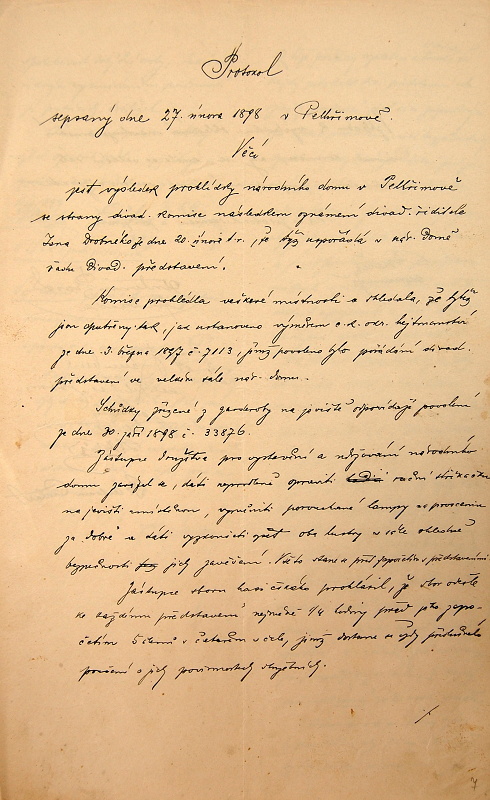 Protokol
sepsaný dne 27. února 1898 v Pelhřimově.
Věcí
jest výsledek prohlídky národního domu v Pelhřimově
se strany divad. komise následkem oznámení divad. ředitele
Jana Drobného ze dne 20. února t. r., že týž uspořádá v nár. domě
řadu divad. představení.
Komise prohlédla veškeré místnosti a shledala, že tytéž
jsou opatřeny tak, jak ustanoveno výměrem c. k. okr. hejtmanství
ze dne 3. března 1897 č. 7113, jímž povoleno bylo pořádání divad.
představení ve velkém sále nár. domu.
Schůdky zřízené z garderoby na jeviště odpovídají povolení
ze dne 30. září 1898 č. 33876.
Zástupce družstva pro vystavění a udržování národního
domu zavázal se, dáti opraviti ruční stříkačku
na jevišti umístěnou, vyměniti porouchané lampy na prosceniu
za dobré a dáti vyzkoušeti oba lustry v sále ohledně
bezpečnosti jich zavěšení. Vše stane se před započetím s představeními
Zástupce sboru hasičského prohlásil, že sbor odešle
ku každému představení nejméně 1/4 hodiny před jeho zapo-
četím 5 členů s četařem v čele, jimž dostane se vždy
poučení o jich povinnostech služebních.
7